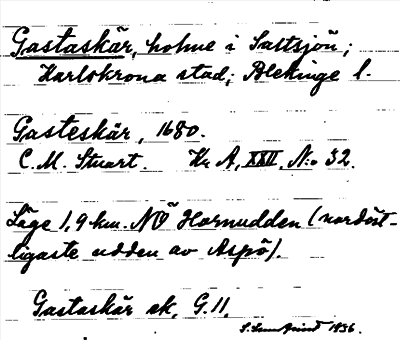 Gastaskär, holme i Saltsjön;
Karlskrona stad; Blekinge l.
Gasteskär, 1680.
C. M. Stuart. Kr A, XXII, No 32.
Läge 1,9 km. NV Hornudden (nordöst-
ligaste udden av Aspö).
Gastaskär ek. G. 11.
1936.